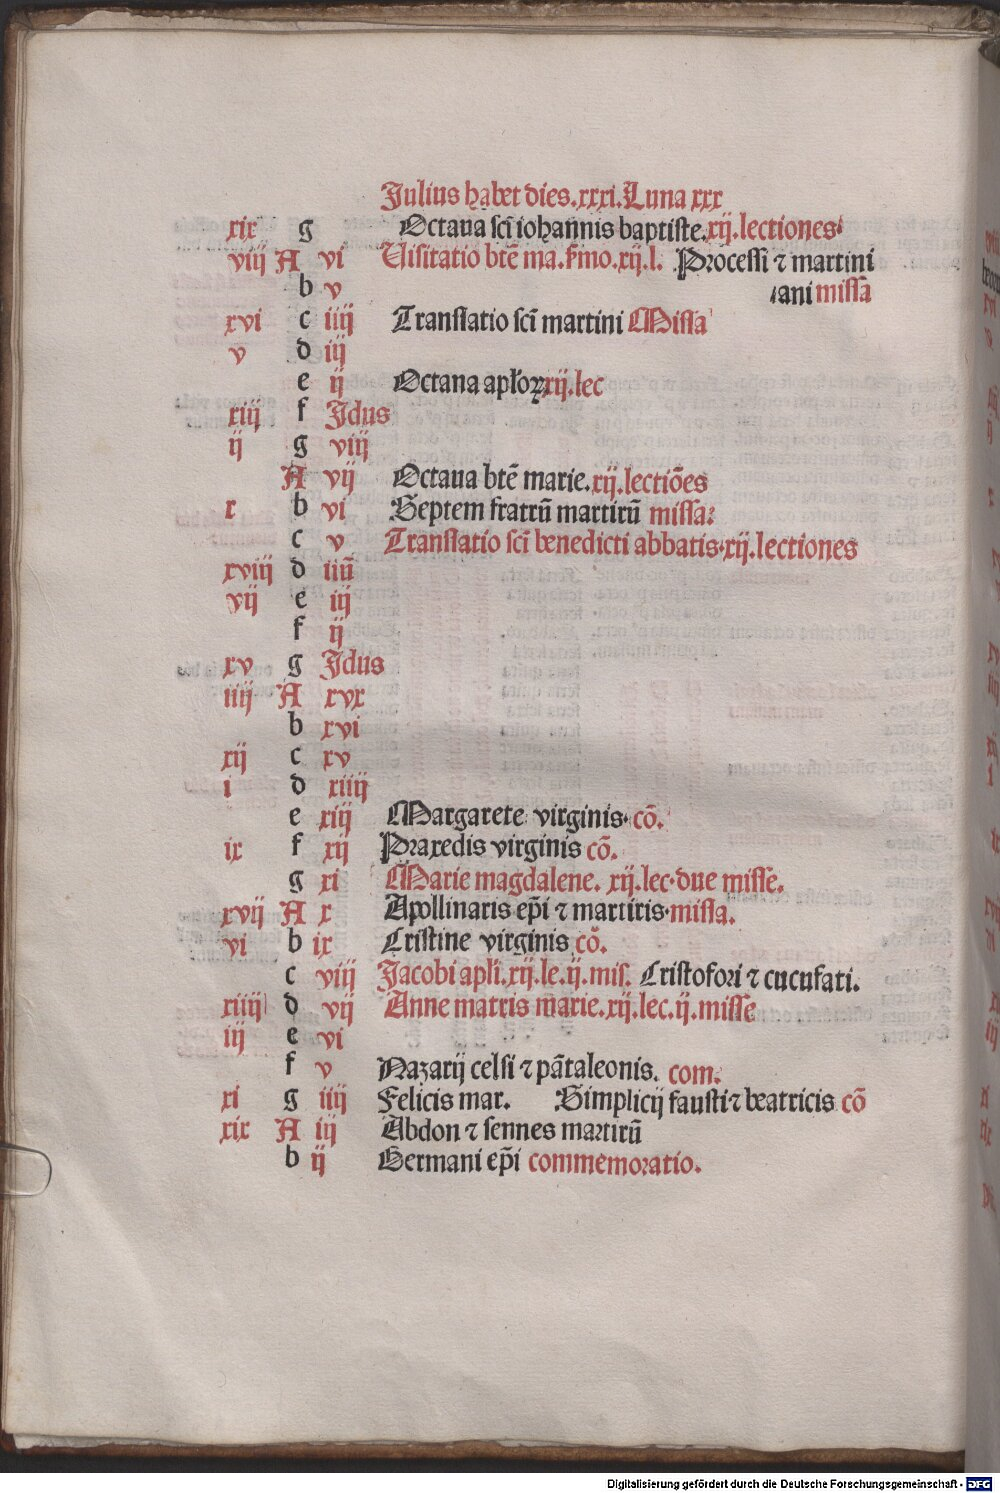 Julius habet dies.xxxi.Luna xxx
xix g Octaua sci̅ iohannis baptiste.xij.lectiones
viij A vi Uisitatio bte̅ ma.f̅mo.xij.l. Processi ⁊ martini
b v ani missa̅
xvi c iiij Translatio sci̅ martini Missa
v d iij
e ij Octana apl̅oꝝ xij.lec
xiij f Jdus
ij g viij
A vij Octaua bte̅ marie.xij.lectio̅es
x b vi Septem fratru̅ martiru̅ missa:
c v Translatio sci̅ benedicti abbatis.xij.lectiones
xviij d iiij
vij e iij
f ij
xv g Jdus
iiij A xvx
b xvi
xij c xv
i d xiiij
e xiij Margarete virginis.co̅.
ix f xij Praxedis virginis co̅.
g xi Marie magdalene. xij.lec.due misse.
xvij A x Apollinaris ep̅i ⁊ martiris.missa.
vi b ix Cristine virginis co̅.
c viij Jacobi apl̅i.xij.le.ij.mis. Cristofori ⁊ cucufati.
xiiij d vij Anne matris marie.xij.lec.ij.misse
iij e vi
f v Nazarij celsi ⁊ pa̅taleonis. com.
xi g iiij Felicis mar. Simplicij fausti ⁊ beatricis co̅
xix A iij Abdon ⁊ sennes martiru̅
b ij Germani ep̅i commemoratio.
Digitalisierung gefördert durch die Deutsche Forschungsgemeinschaft - DFG